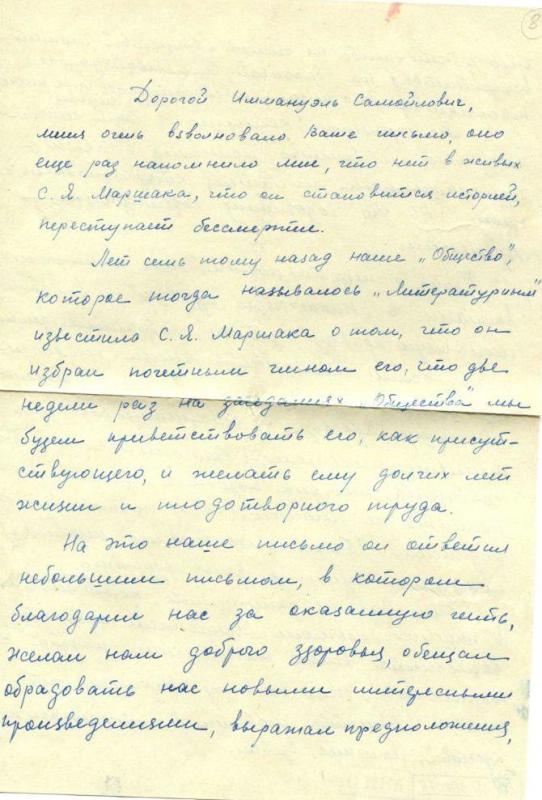 8
Дорогой Иммануэль Самойлович,
меня очень взволновало Ваше письмо, оно
еще раз напомнило мне, что нет в живых
С. Я. Маршака, что он становится историей,
переступает бессмертие.
Лет семь тому назад наше „Общество",
которое тогда называлось „Литературным"
известило С. Я. Маршака о том, что он
избран почетным членом его, что две
недели раз на заседаниях „Общества" мы
будем приветствовать его, как присут-
ствующего, и желать ему долгих лет
жизни и плодотворного труда.
На это наше письмо он ответил
небольшим письмом, в котором
благодарил нас за оказанную честь,
желал нам доброго здоровья, обещал
обрадовать нас новыми интересными
произведениями, выражал предположения,